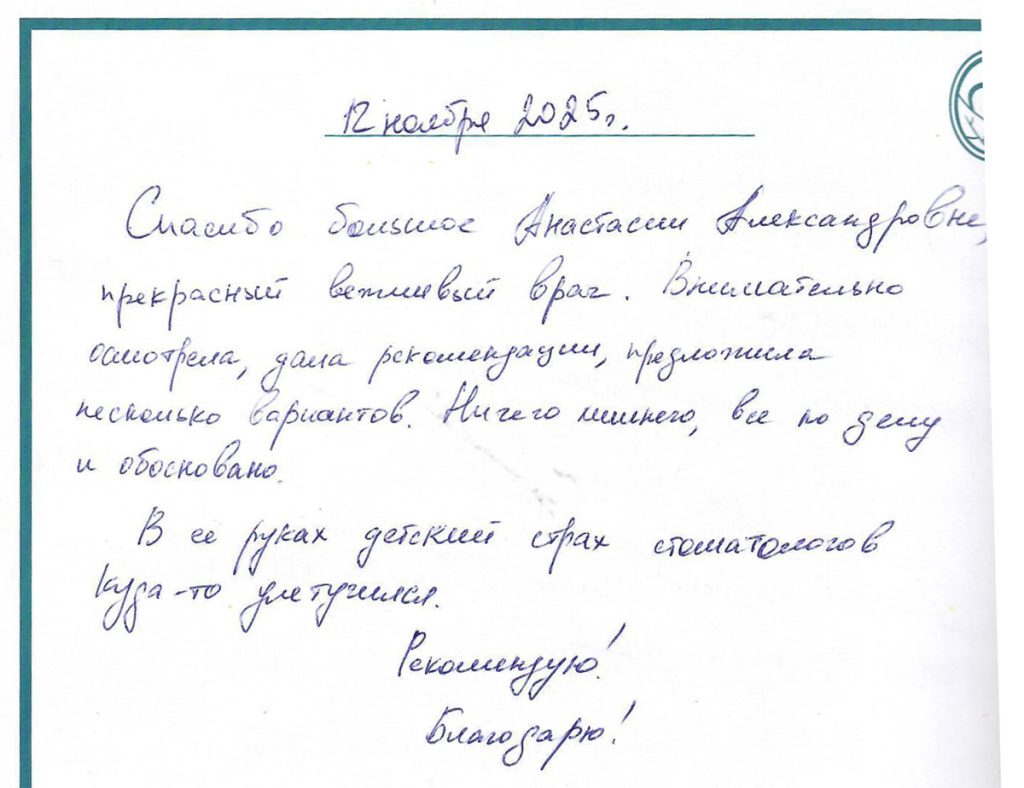 12 ноября 2025г.
Спасибо большое Анастасии Александровне,
прекрасный вежливый врач. Внимательно
осмотрела, дала рекомендации, предложила
несколько вариантов. Ничего лишнего, все по делу
и обосновано.
В ее руках детский страх стоматологов
куда-то улетучился.
Рекомендую!
Благодарю!